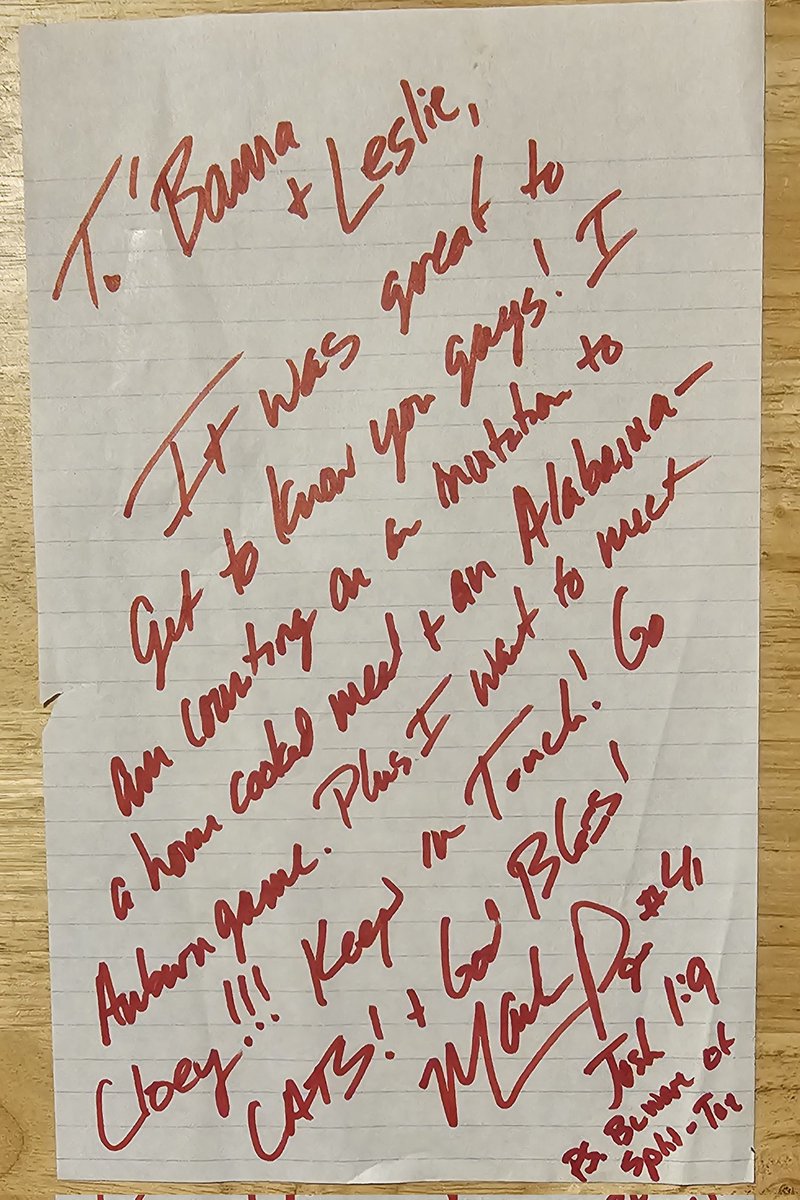 To' Bama
+ Leslie,
It was great to
Get to know you guys! I
am counting on an invitation to
a home cooked meal + an Alabama-
Auburn game. Plus I want to meet
Cloey!!! Keep in Touch! Go
CATS! + God BLess!
Mark Pope #41
Josh 1:9
Ps. Beware of
Split-Toe